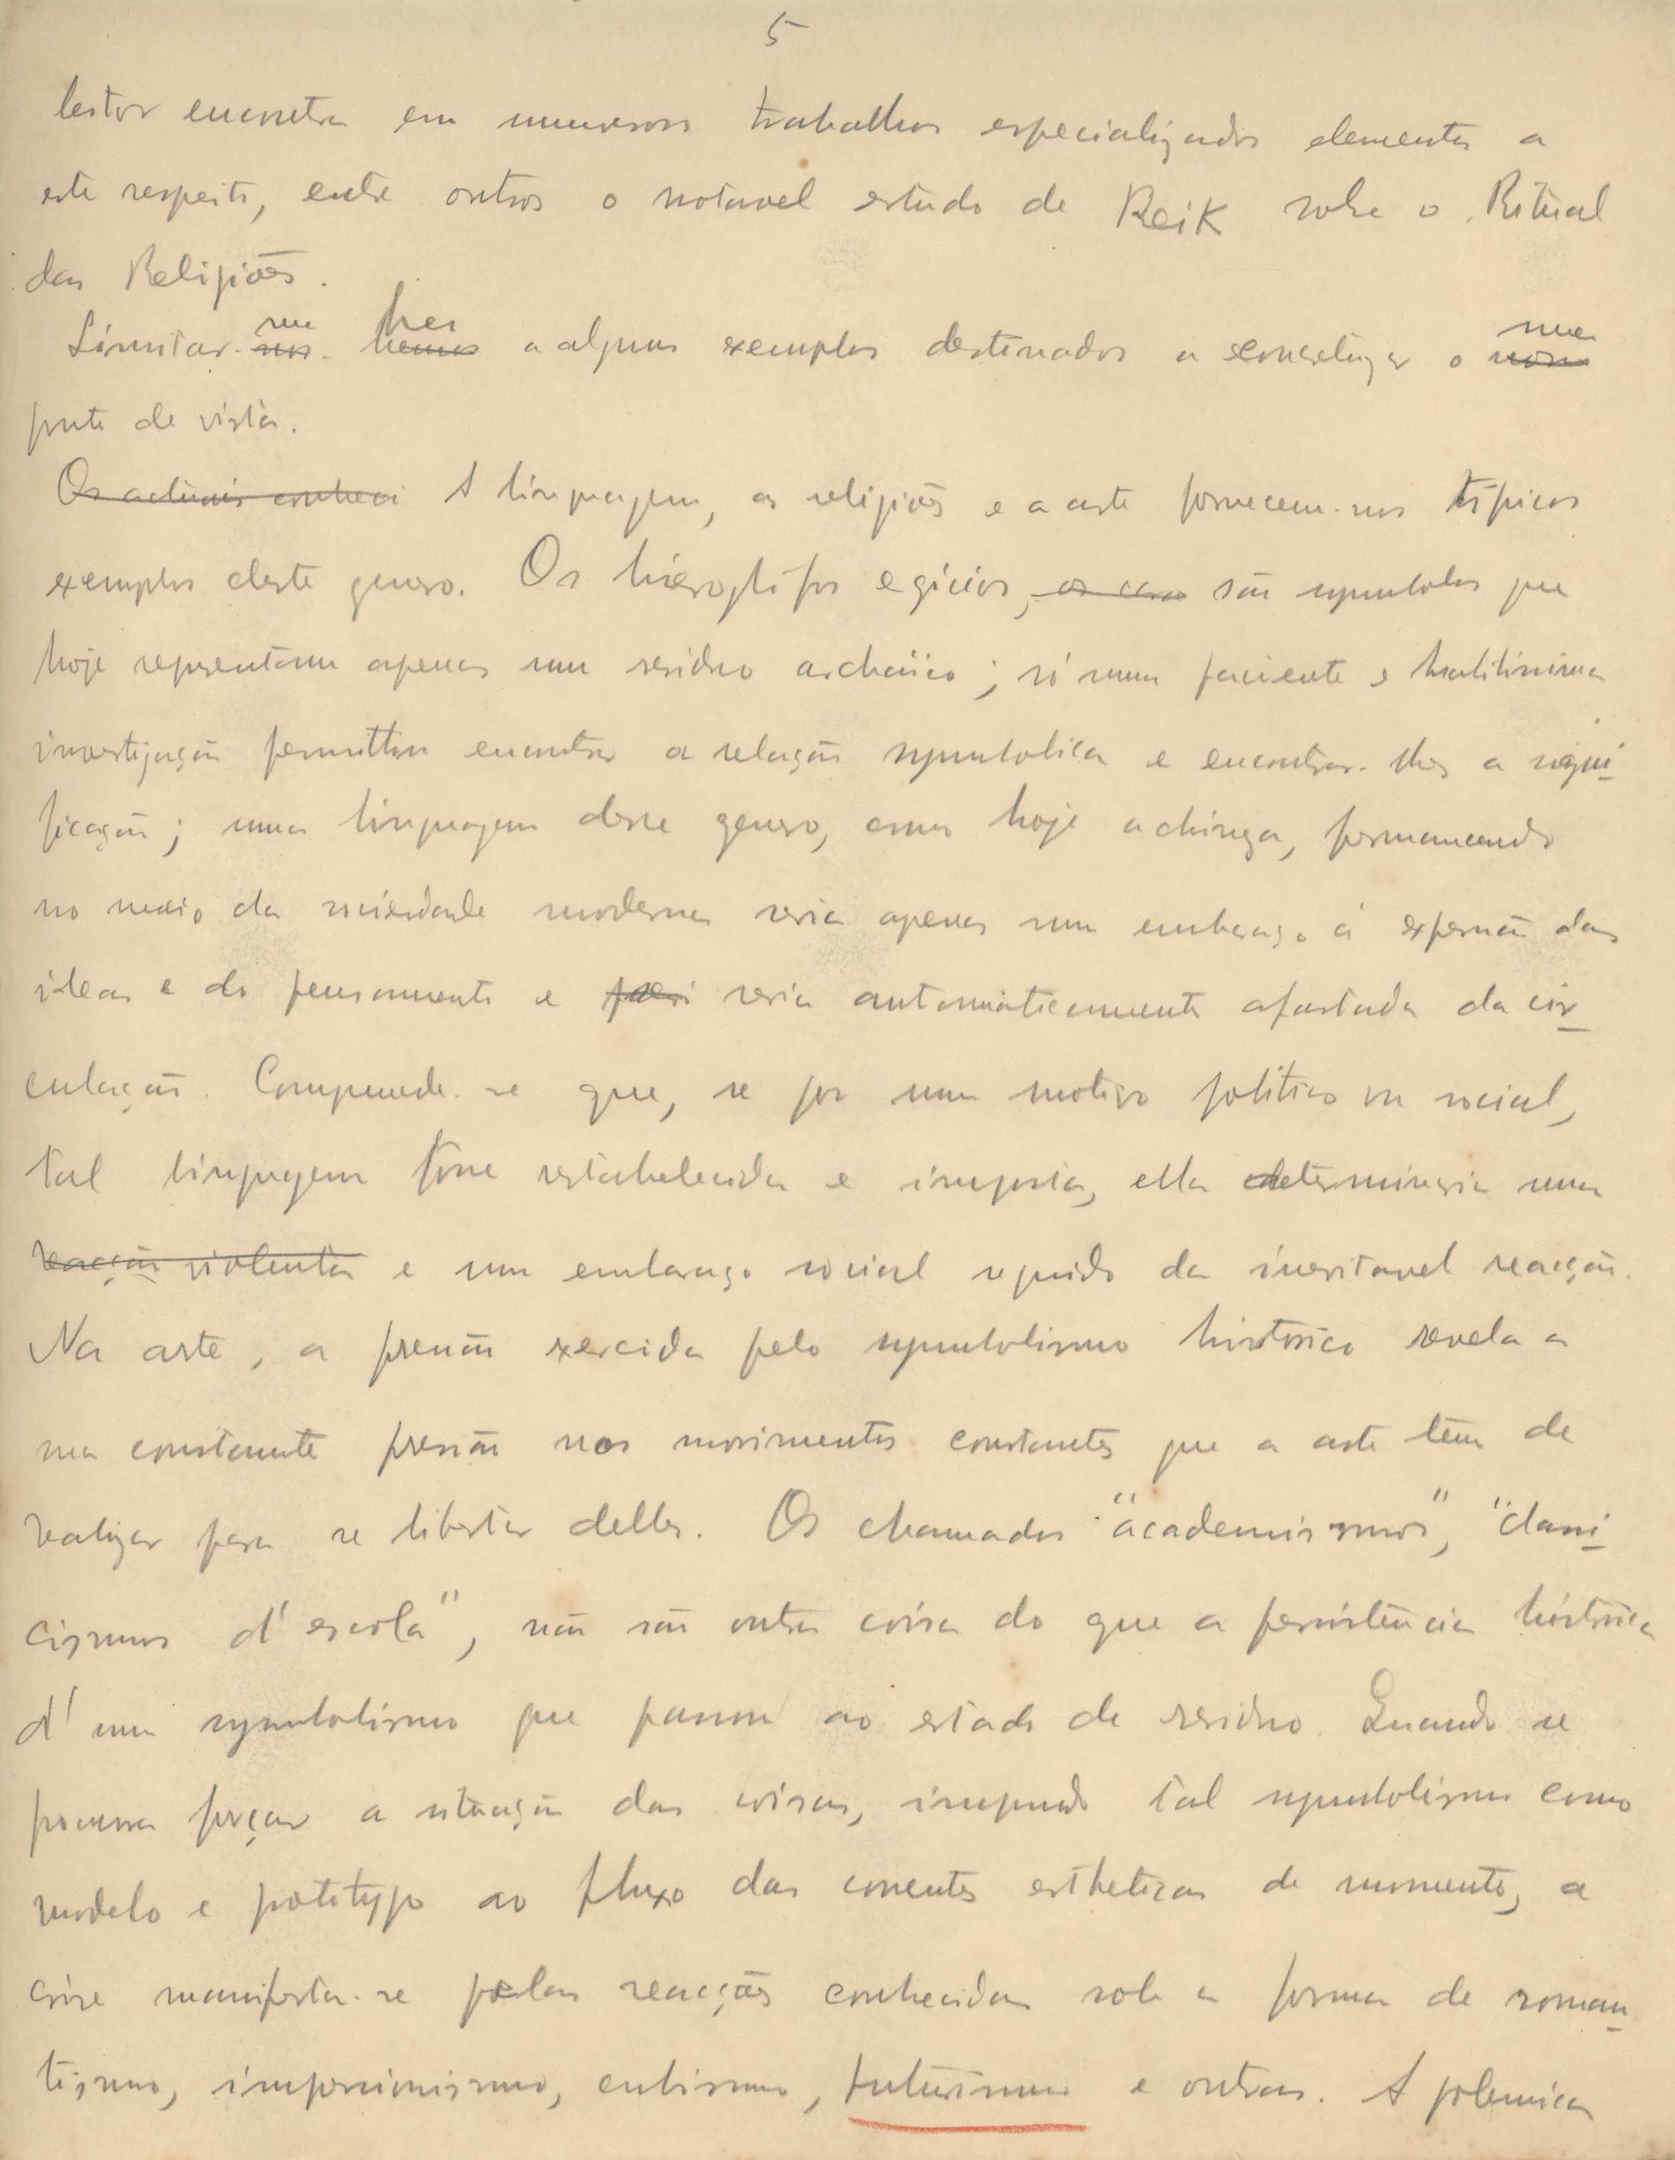 5
leitor encontra em numerosos trabalhos especializados elementos a
este respeito, entre outros o notavel estudo de Reik sobre o Ritual
das Religiões.
Limitar-nos me hemos hei a alguns exemplos destinados a concretizar o nosso meu
ponto de vista.
Os actuais conheci A linguagem, as religiões e a arte fornecem-nos típicos
exemplos deste genero. Os hieroglifos egícios, os cara são symbolos que
hoje representam apenas um residuo archaïco; só numa paciente e
investigação permittiu encontrar a relação symbolica e encontrar-lhes a signi
ficação; uma linguagem desse genero, como hoje a chineza, permanecendo
no meio da sociedade moderna seria apenas um embaraço á expressão das
ideas e do pensamento e seria automaticamente afastada da cir
culação. Comprehende-se que, se por um motivo politico ou social,
tal linguagem fosse restabelecida e imposta, ella determinaria uma
reacção violenta e um embaraço social seguido da inevitavel reacção.
Na arte, a pressão exercida pelo symbolismo historico revela a
sua constante pressão nos movimentos constantes que a arte tem de
realizar para se libertar delles. Os chamados "academismos", "classi
cismos d'escola", não são outra coisa do que a persistência histórica
d'um symbolismo que passou ao estado de residuo. Quando se
procura forçar a situação das coisas, impondo tal symbolismo como
modelo e prototypo ao fluxo das correntes estheticas do momento, a
crise manifesta-se pelas reacções conhecidas sob a forma de roman
tismo, impressionismo, cubismo, futurismo e outras. A polemica